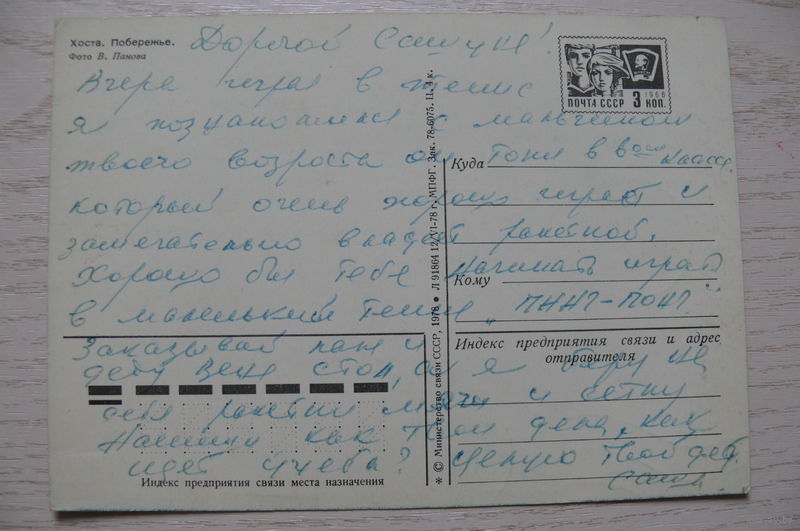 Хоста. Побережье.
Фото В. Панова
Дорогой Сашуня!
Вчера играл в теннис
я познакомился с мальчиком
твоего возраста он тоже в 8ом классе
который очень хорошо играет и
замечательно владеет ракеткой.
Хорошо бы тебе начинать играть
в маленький теннис „ПИНГ-ПОНГ"
Заказывай папе и
деду Вене стол, а я беру на
себя ракетки мячи и сетку
Напиши как твои дела, как
идет учеба? Целую Твой деб.
Саша.
1966
ПОЧТА СССР 3 КОП.
Куда
Кому
Индекс предприятия связи и адрес
отправителя
Индекс предприятия связи места назначения
* © Министерство связи СССР, 1978 ● Л 91864 12/VI-78 г. МПФГ. Зак. 78-6075. Ц. 4 к.